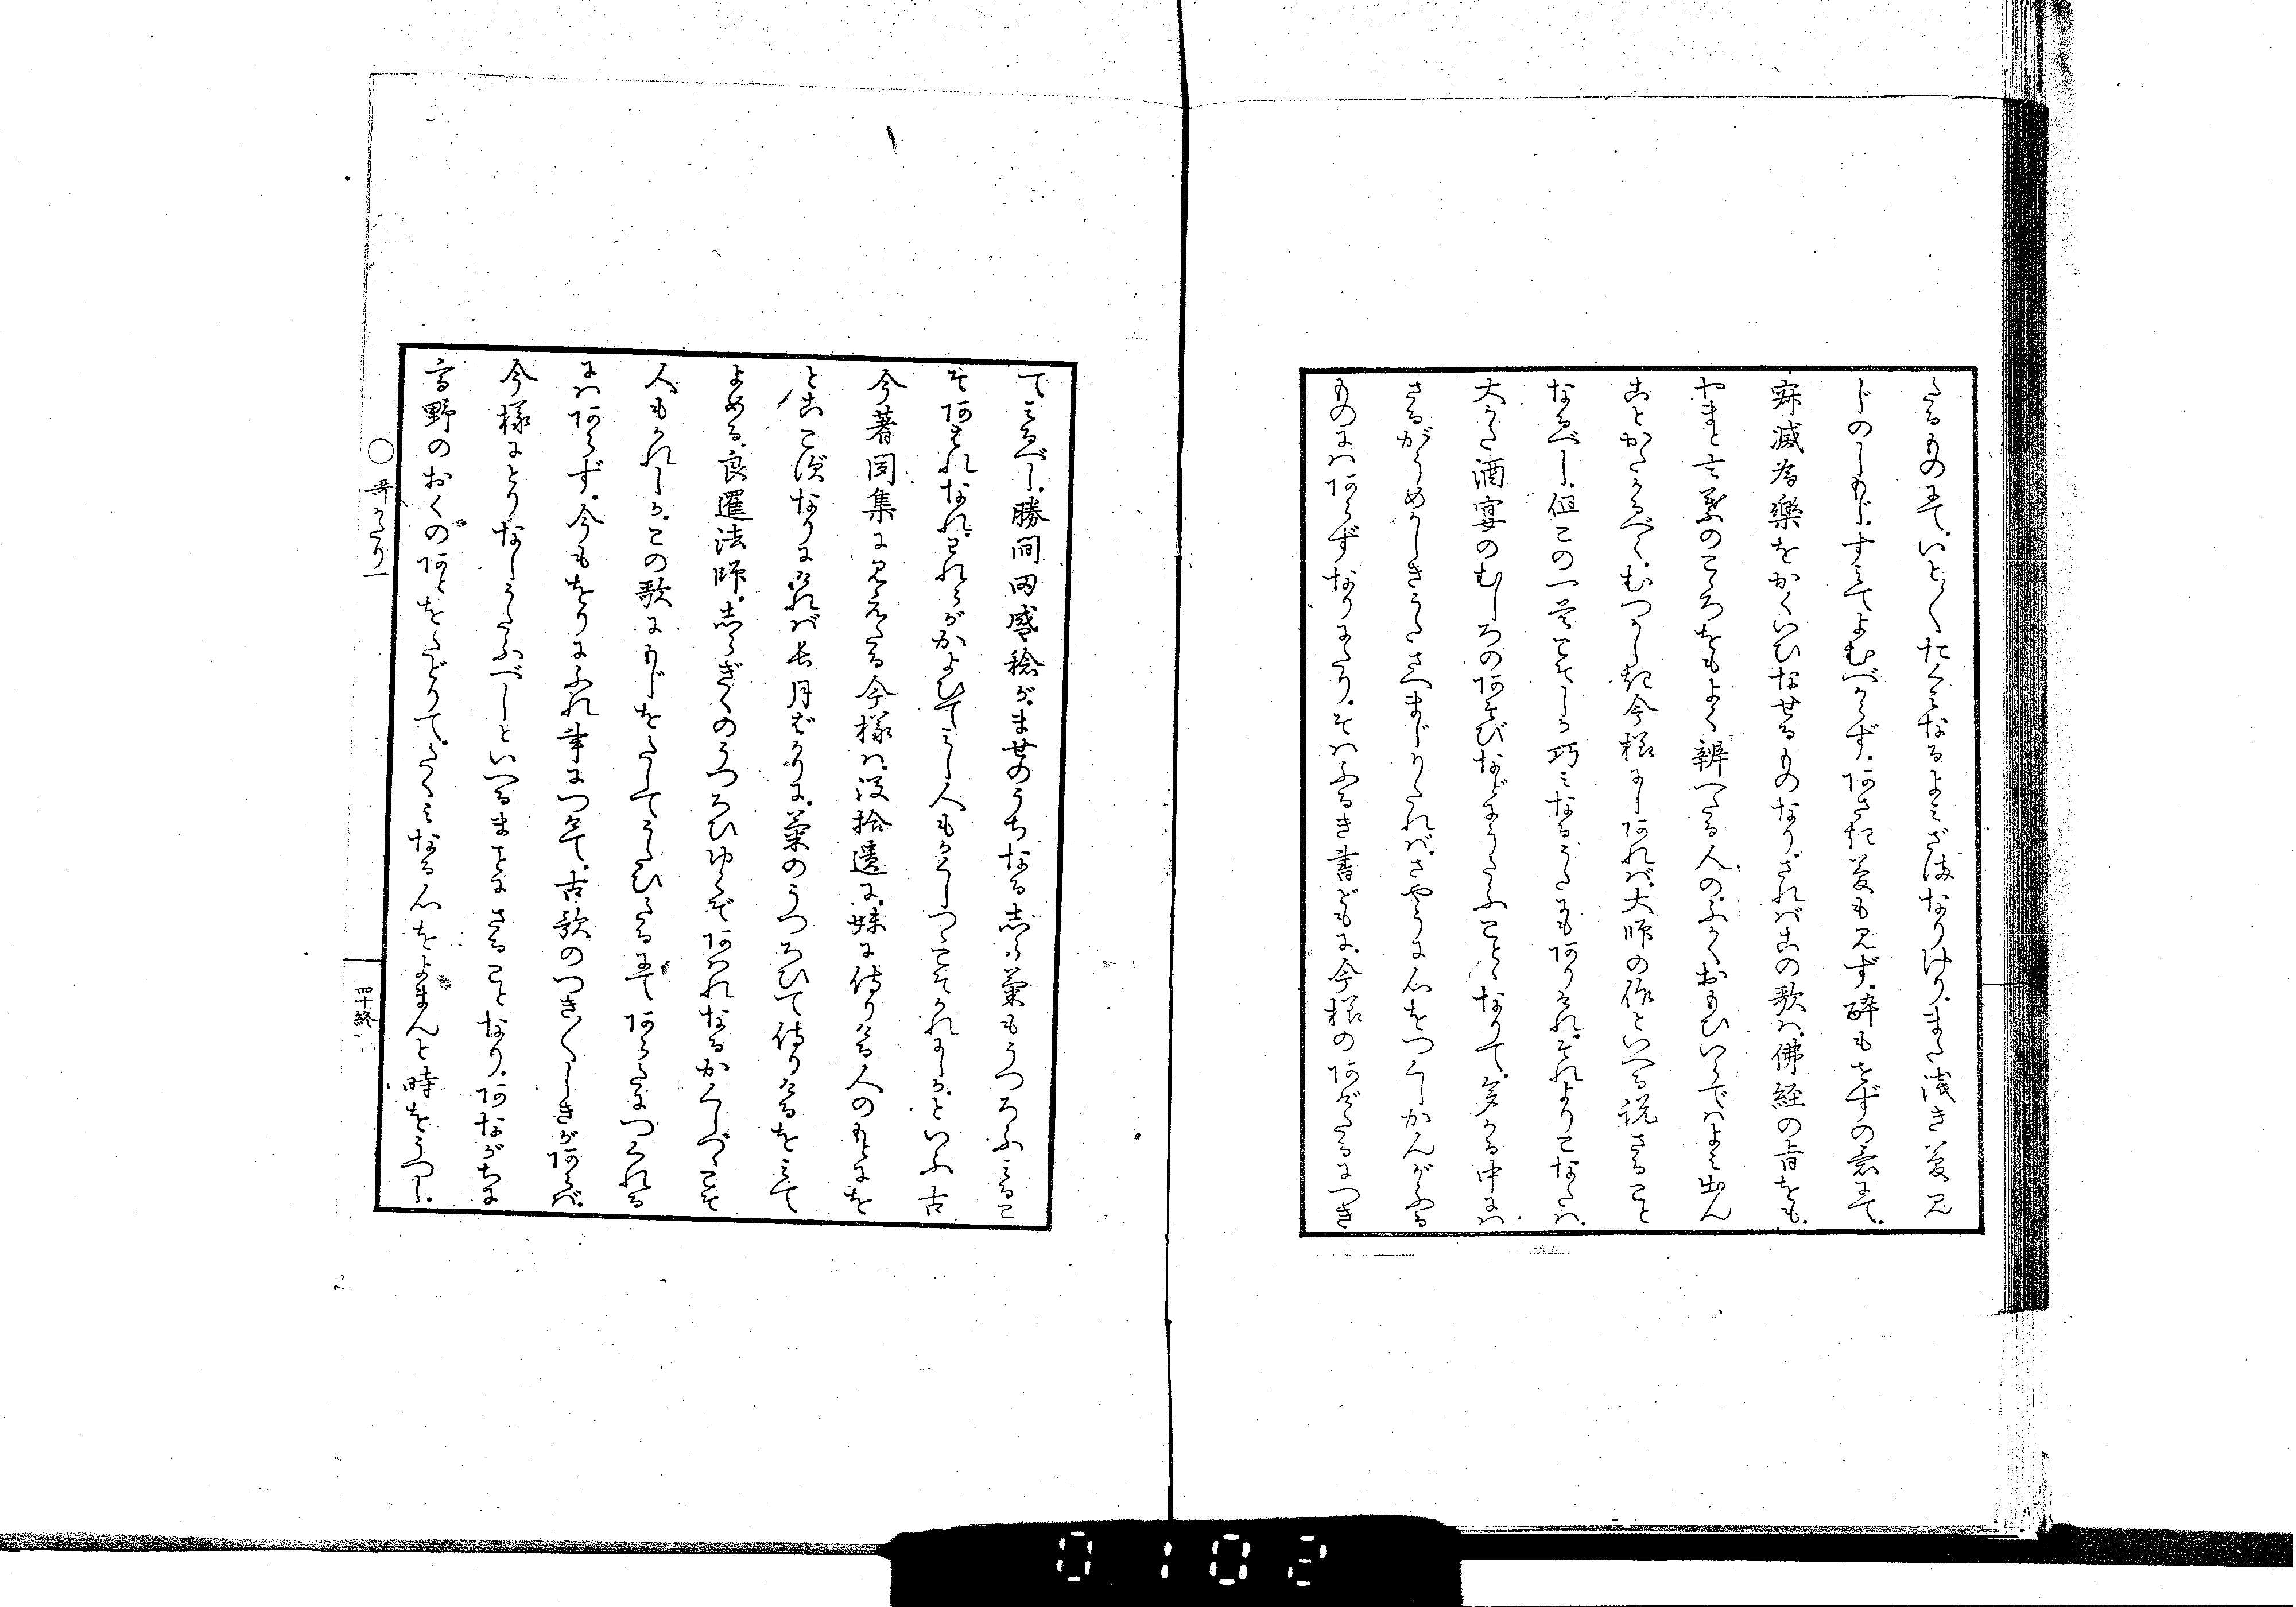 たるものにて、いと〱たくみなるよみざまなりけり、また淺き夢見
じのしもじ、すみてよむべからず、あさき夢も見ず、醉もせずの意にて、
寂滅為樂をかくいひなせるものなり、さればこの歌は、佛経の旨をも、
やまと言葉のこゝろをもよく辨へたる人の、ふかくおもひいらではよみ出ん
ことかたかるべく、むつかしき今様にしあれば、大師の作といへる説さること
なるべし、但この一首こそしか巧みなるうたにもありけれ、それよりこなたは、
大かた酒宴のむしろのあそびなどにうたふことゝなりて、多かる中には、
さるがうめかしきうたさへまじりたれば、さやうに心をつくしかんがふる
ものにはあらずなりにたり、そはふるき書どもに、今様のあまたあるにつき
てみるべし、勝間田盛稔が、ませのうちなる志ら菊もうつろふみるこ
そあはれなれ、われらがかよひてみし人もかくしつゝこそかれにしか、といふ古
今著聞集に見えたる今様は、後拾遺に、妹に侍りける人のもとにを
とここずなりにければ、長月ばかりに、菊のうつろひて侍りけるをみて
よめる、良暹法師、志らぎくのうつろひゆくぞあはれなるかくしつゝこそ
人もかれしか、この歌にもじをたしてうたひたるにて、あらたにつくれる
にはあらず、今もをりにふれ事につけて、古歌のつき〲しきがあらば、
今様にとりなしうたふべしといへるまことにさることなり、あながちに
高野のおくのあとをたどりて、たくみなる心をよまんと時をうつし、
○哥かたり一
四十終
0102